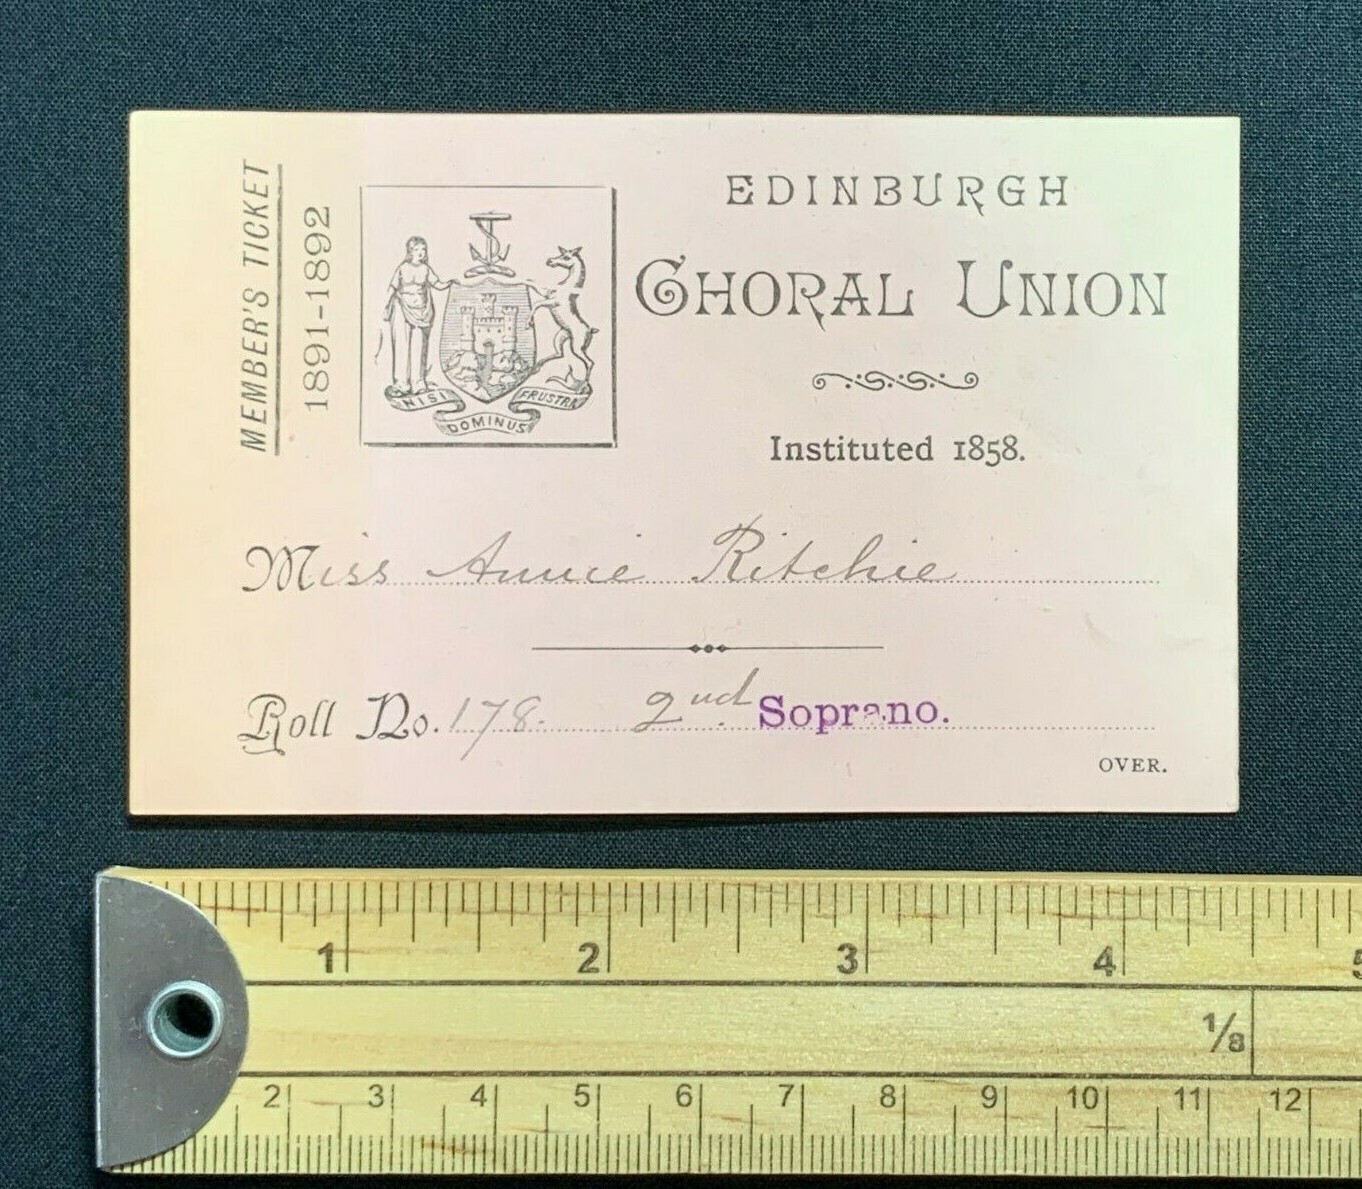 MEMBER'S TICKET
1891-1892
NISI DOMINUS FRUSTRA
EDINBURGH
CHORAL UNION
Instituted 1858.
Miss Annie Ritchie
Roll No. 178. 2nd Soprano.
OVER.
1 2 3 4 5
1/8
2 3 4 5 6 7 8 9 10 11 12